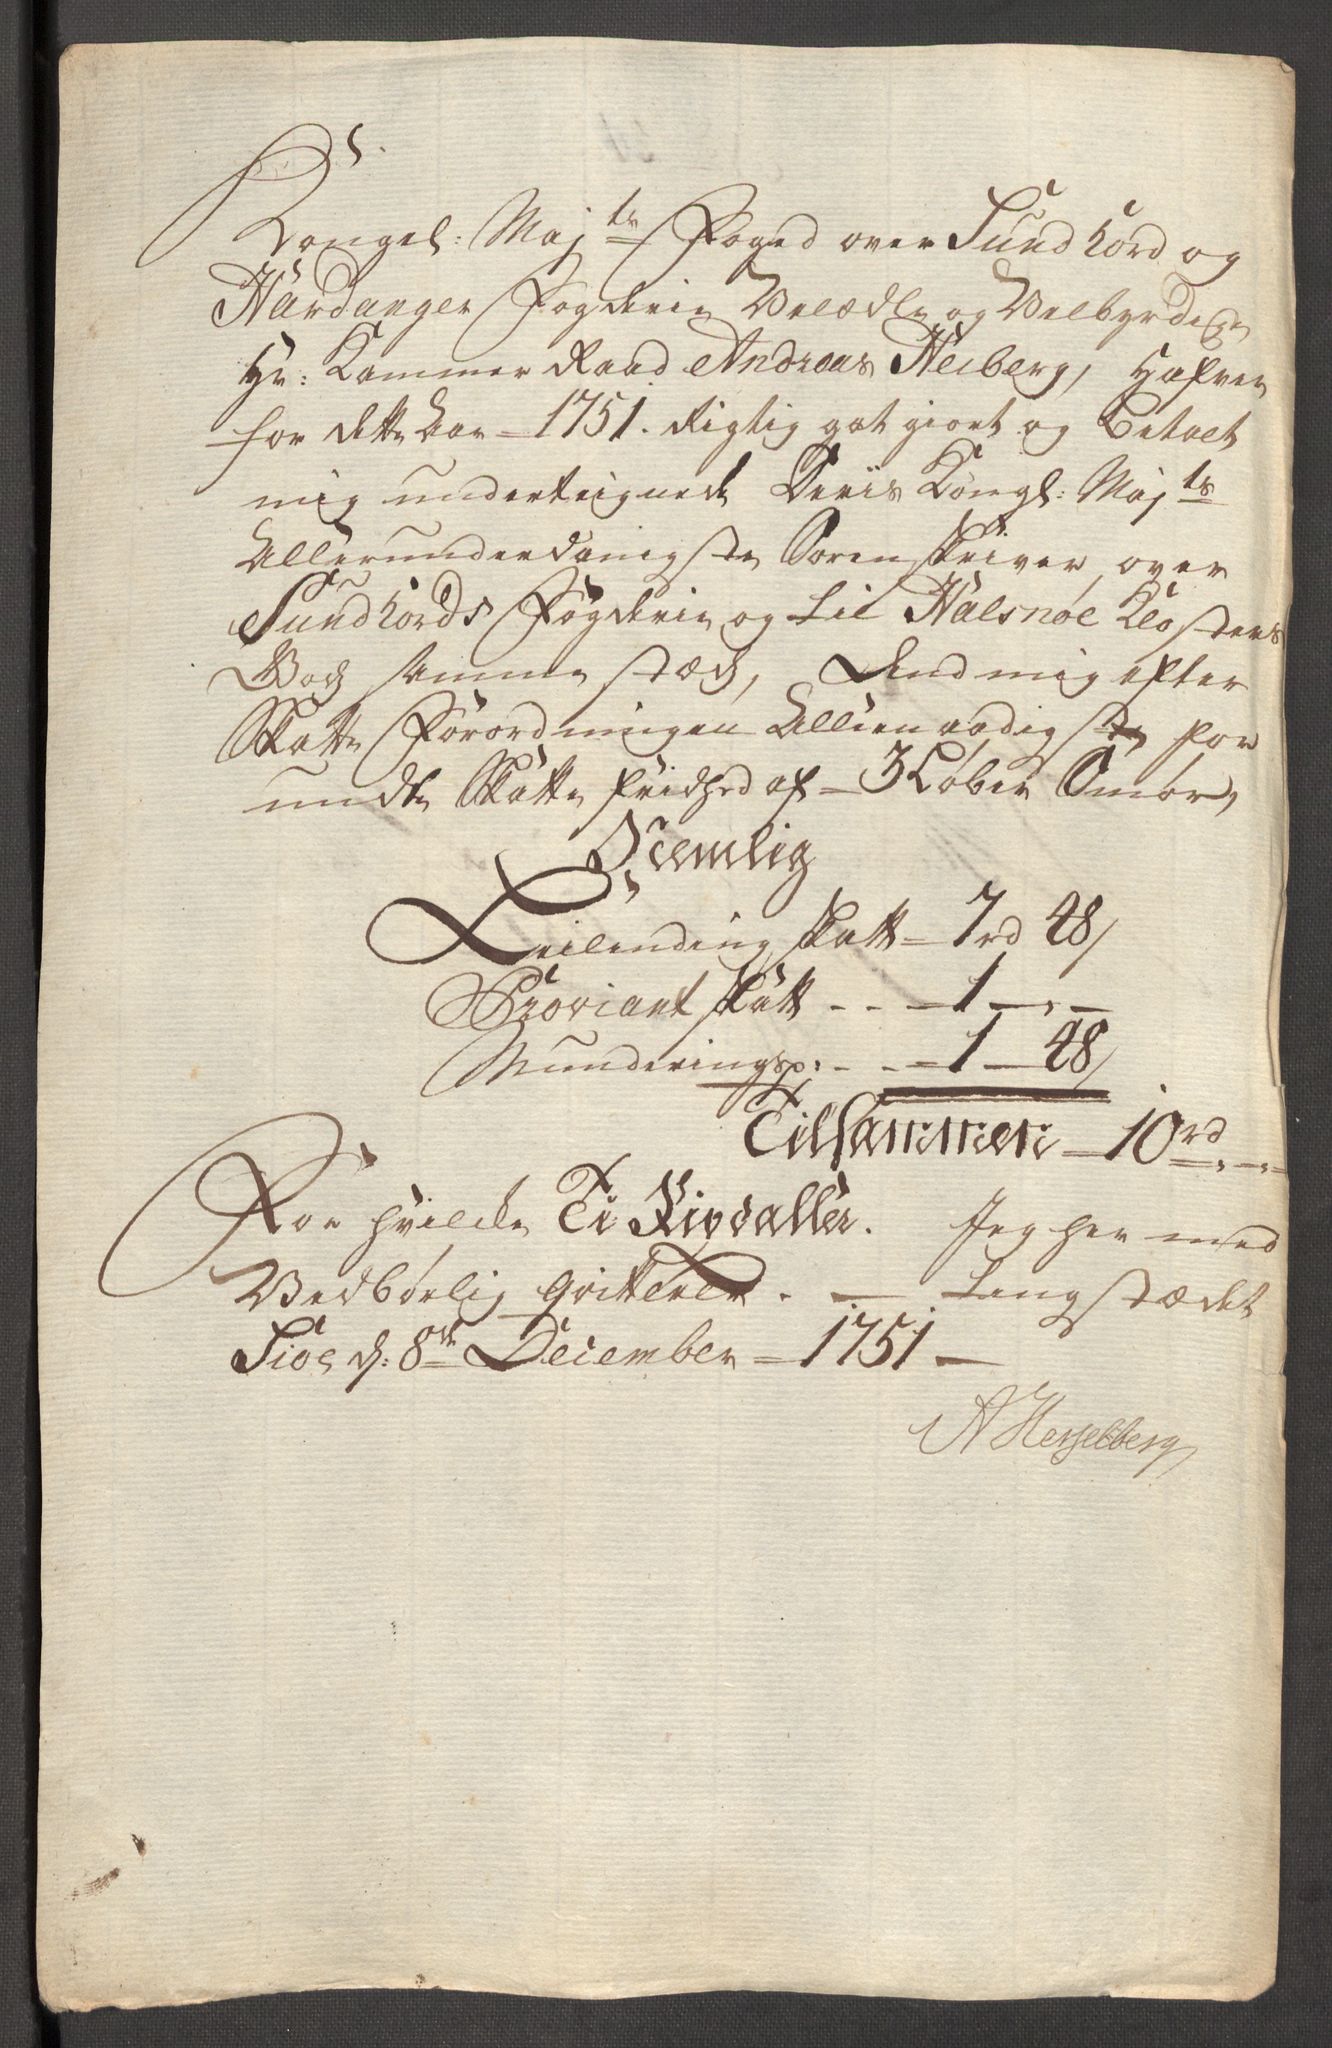 Kongel: Maj ts Foged over Sundhord og
Hardanger Fogderie Velædle og Velbyrdige
Hr: Kammer Raad Andreas Heiberg, Hafver
for dette Aar 1751. Rigtig got giort og Betalt
mig underteignede Deris Kongl: Maj ts
Allerunderdanigste Sorenskriver over
Sundhords Fogderie og til Halsnøe Closters
Godz samme stædz, dend mig efter
Skatte Forordningen Allernaadigste for
undte Skatte friehed af 3 Løber Smør,
Nemlig
Leilendings skatt = 7 rd 48/
Proviant skatt - - = 1 - , -
Munderings p: - - = 1 - 48/
Tilsammen = 10 rd - , -
For hvilcke Ti Rixdaller. Jeg her med
Vedbørlig qvitterer. - Langstædet
Sioe d: 8de December = 1751 -
A Heszelberg